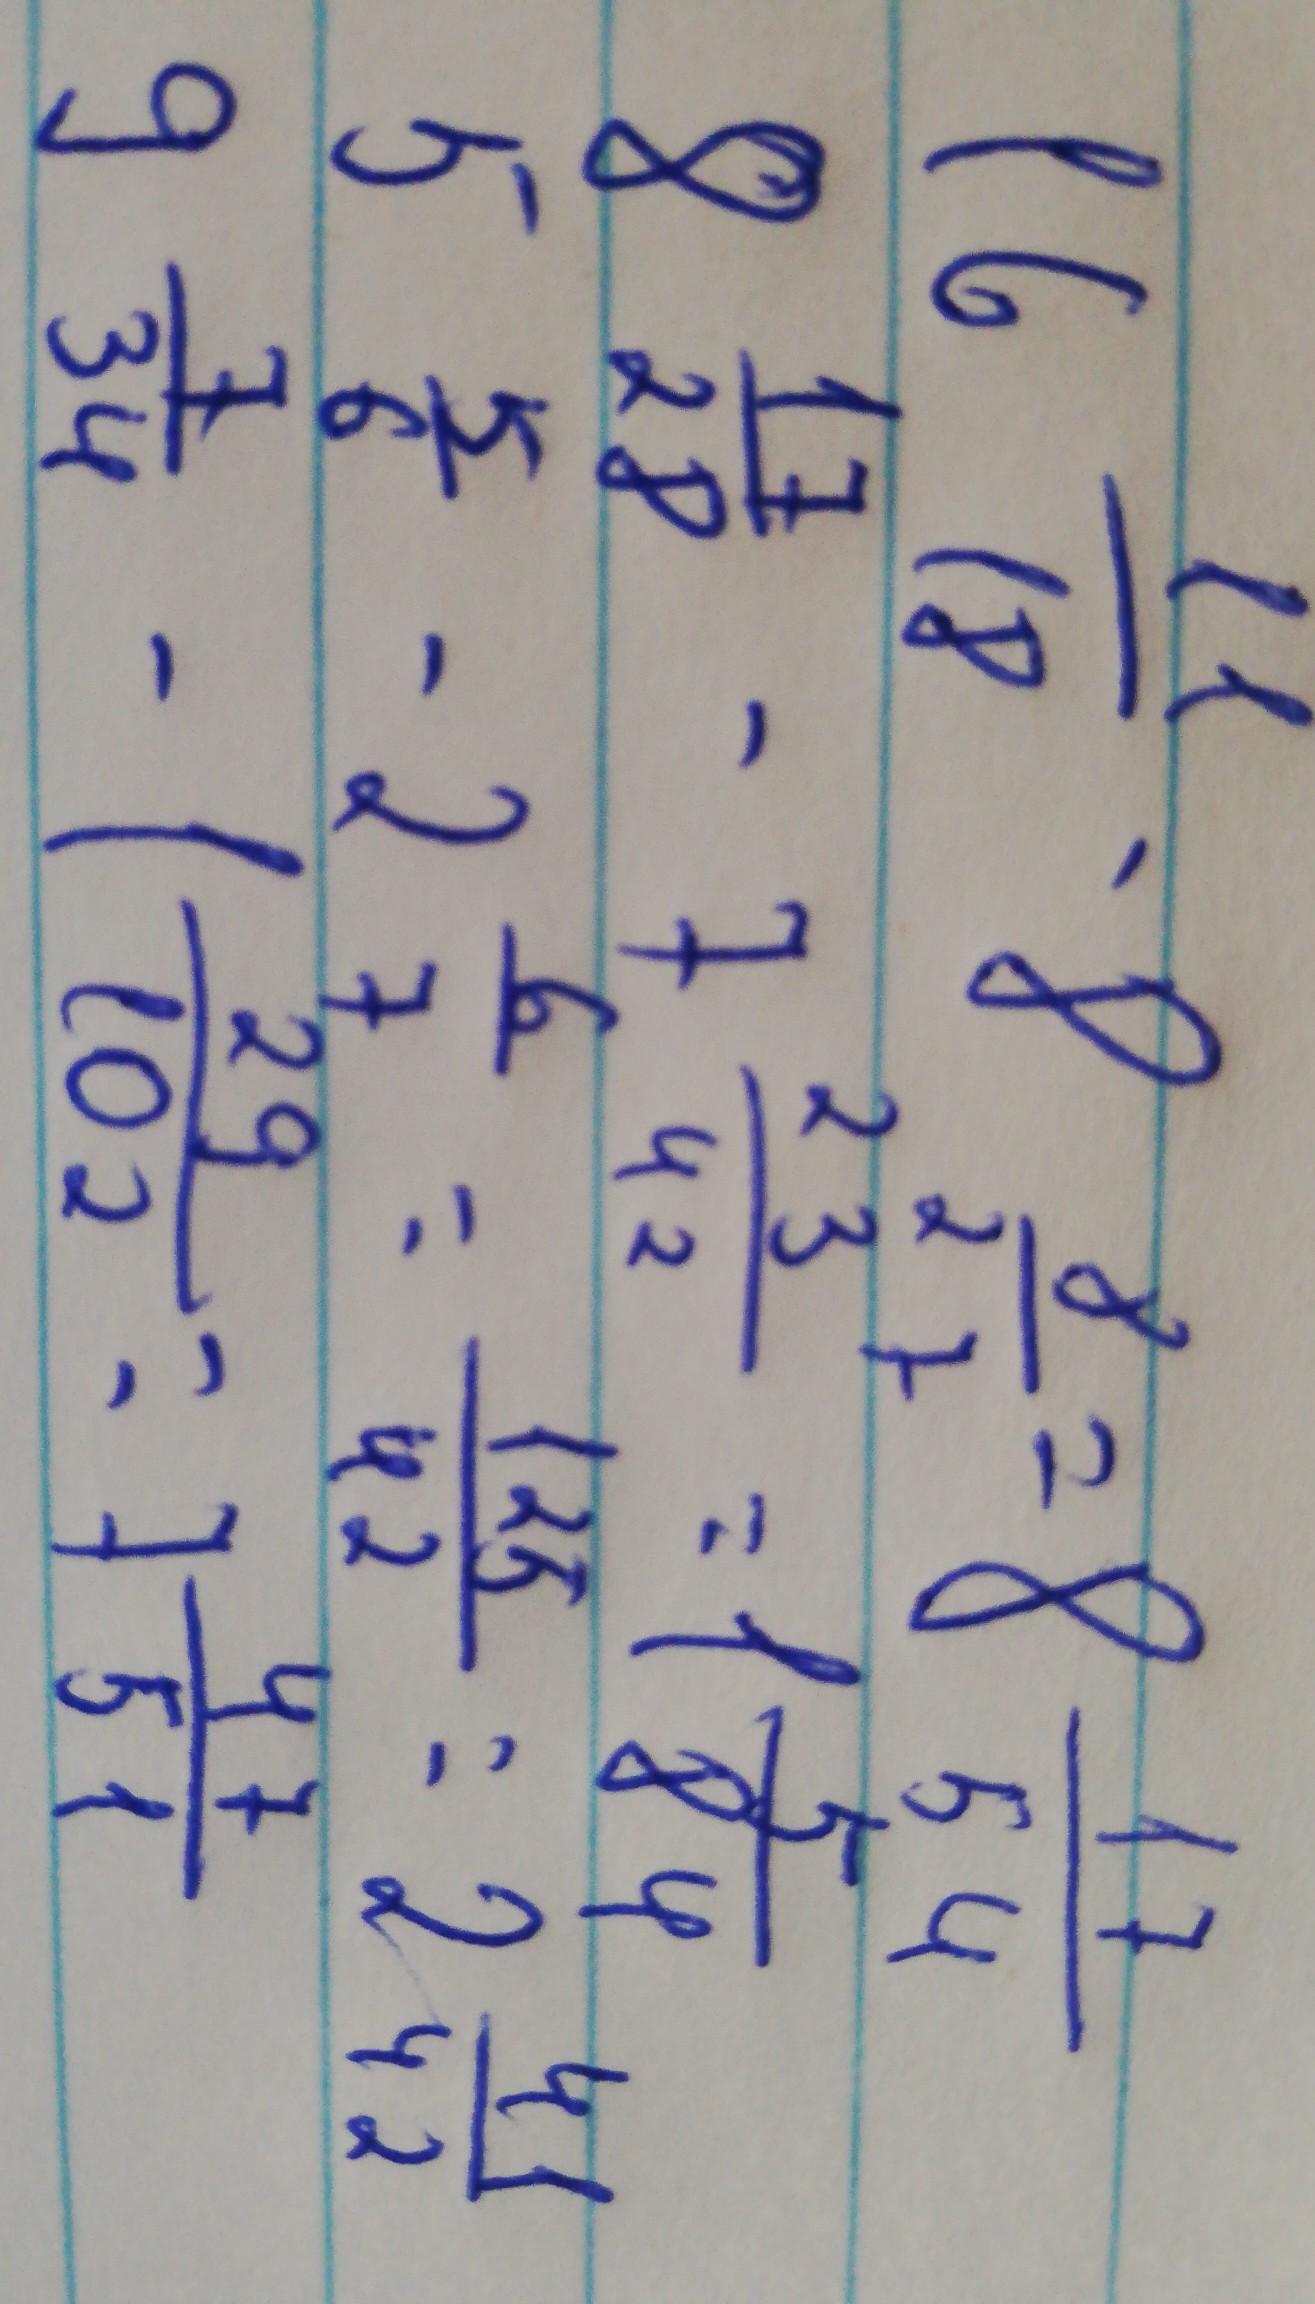 16 11/18 - 8 8/27 = 8 17/54
8 17/28 - 7 23/42 = 1 5/84
5 5/6 - 2 6/7 = 125/42 = 2 41/42
9 7/34 - 1 29/102 = 7 47/51